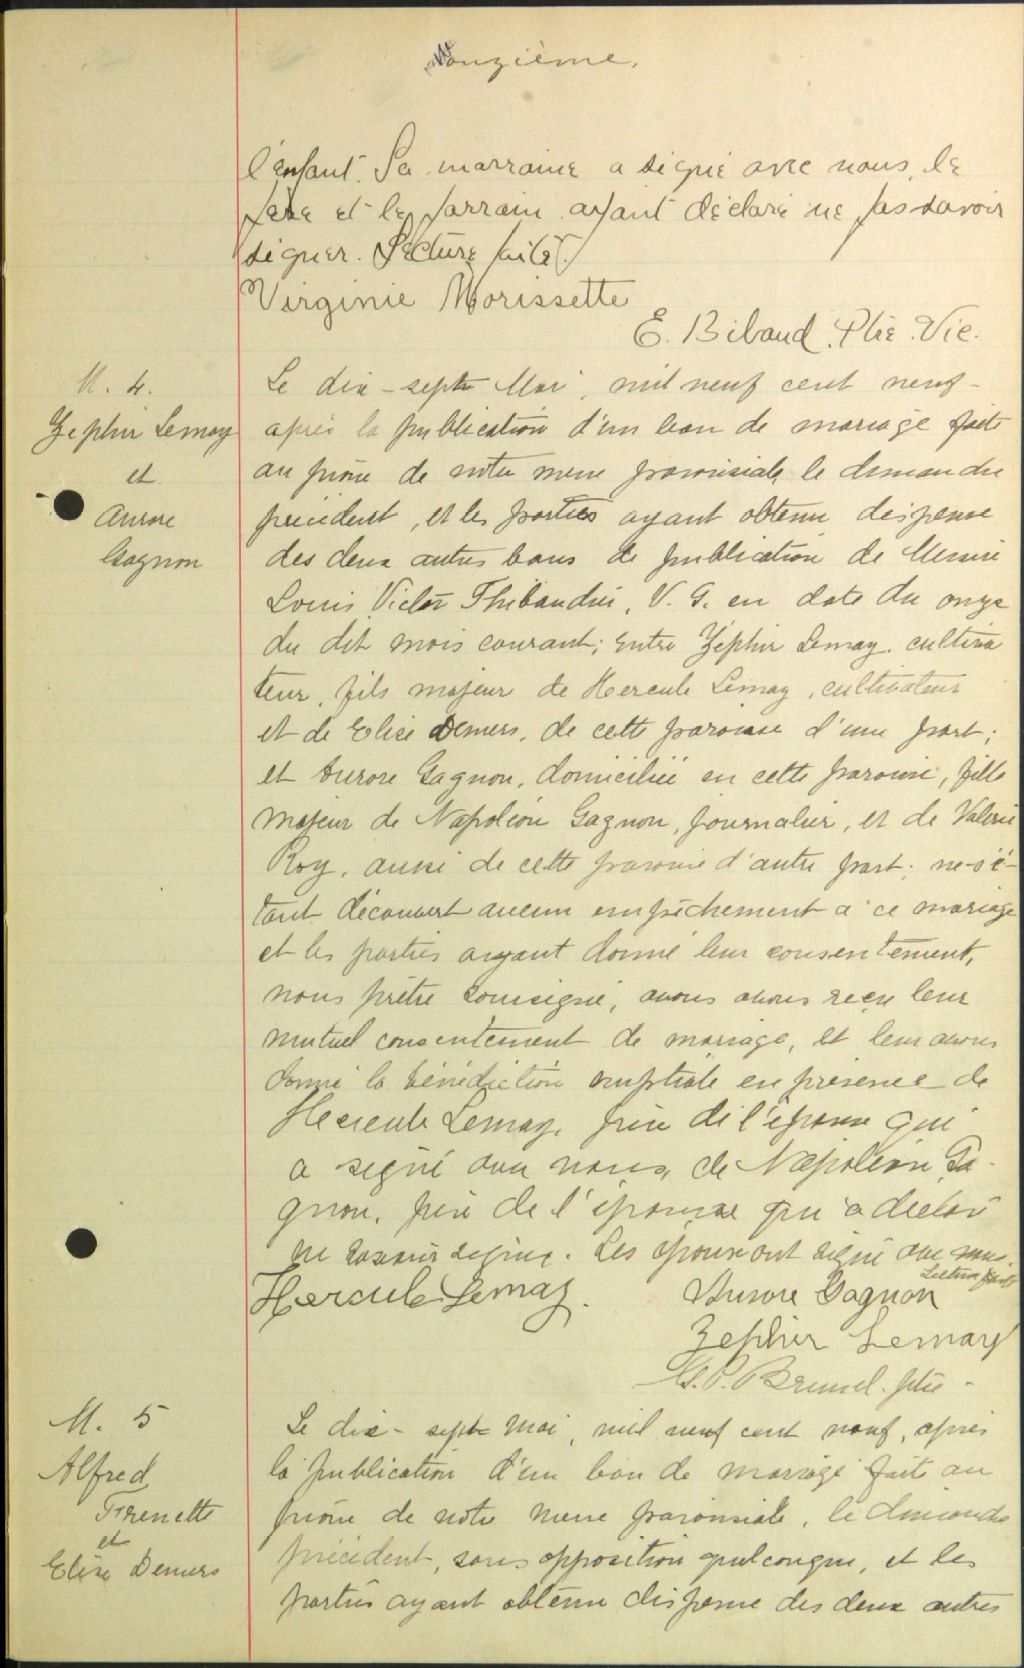 onzième.
l'enfant. La marraine a signé avec nous, le
père et le parrain ayant déclaré ne pas savoir
signer. Lecture faite.
Virginie Morissette
E. Bibaud. Ptre. Vic.
M. 4.
Zephir Lemay
et
Aurore
Gagnon
Le dix-sept Mai, mil neuf cent neuf-
après la publication d'un ban de mariage faite
au prône de notre messe paroissiale le dimanche
précédent, et les parties ayant obtenu dispense
des deux autres bans de publication de Messire
Louis Victor Thibaudier, V. G. en date du onze
du dit mois courant; entre Zéphir Lemay, cultiva
teur, fils majeur de Hercule Lemay, cultivateur
et de Elise Demers, de cette paroisse d'une part;
et Aurore Gagnon, domiciliée en cette paroisse, fille
majeur de Napoléon Gagnon, journalier, et de Valerie
Roy, aussi de cette paroisse d'autre part; ne s'é-
tant découvert aucun empêchement à ce mariage
et les parties ayant donné leur consentement,
nous prêtre soussigné, avons avons reçu leur
mutuel consentement de mariage, et leur avons
donné la bénédiction nuptiale en présence de
Hercule Lemay, père de l'époux qui
a signé avec nous, de Napoléon Ga-
gnon, père de l'épouse qui a déclaré
ne savoir signer. Les époux ont signé avec nous.
Lecture faite
Hercule Lemay. Aurore Gagnon
Zephir Lemay
G. P. Brunel. ptre-
M. 5
Alfred
Frenette
et
Elise Demers
Le dix-sept Mai, mil neuf cent neuf, après
la publication d'un ban de mariage faite au
prône de notre messe paroissiale, le dimanche
précédent, sans opposition quelconque, et les
parties ayant obtenu dispense des deux autres